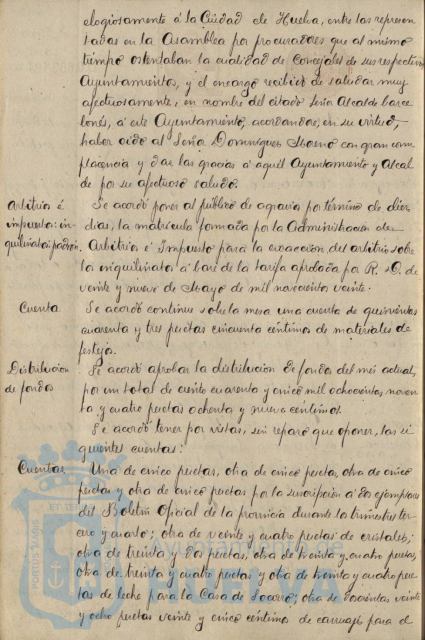 elogiosamente á la Ciudad de Huelva, entre las represen
tadas en la Asamblea por procuradores que al mismo
tiempo ostentaban la cualidad de Concejales de sus respectivos
Ayuntamientos, y el encargo recibido de saludar muy
afectuosamente, en nombre del citado Señor Alcalde barce
lonés, á este Ayuntamiento, acordandose, en su virtud,
haber oido al Señor Dominguez con gran com
placencia y dar las gracias á aquel Ayuntamiento y Alcal
de por su afectuoso saludo.
Arbitrios é
impuestos: in-
quilinatos: padron.
Se acordó poner al público de agravio por término de diez
dias, la matrícula formada por la Administracion de
Arbitrios é Impuestos para la exaccion del arbitrio sobre
los inquilinatos á base de la tarifa aprobada por R. O. de
veinte y nueve de Mayo de mil novecientos veinte.
Cuenta
Se acordó continue sobre la mesa una cuenta de quinientas
cuarenta y tres pesetas cincuenta céntimos de materiales de
festejos.
Distribucion
de fondos
Se acordó aprobar la distribucion de fondos del mes actual,
por un total de ciento cuarenta y cinco mil ochocientas noven
ta y cuatro pesetas ochenta y nueve céntimos.
Se acordó tener por vistas, sin reparo que oponer, las si
guientes cuentas:
Cuentas
Una de cinco pesetas, otra de cinco pesetas, otra de cinco
pesetas y otra de cinco pesetas por la suscripcion á dos ejemplares
del Boletin Oficial de la provincia durante los trimestres ter
cero y cuarto; otra de veinte y cuatro pesetas de cristales;
otra de treinta y dos pesetas, otra de treinta y cuatro pesetas,
otra de treinta y cuatro pesetas y otra de treinta y cuatro pese
tas de leche para la Casa de Socorro; otra de doscientas veinte
y ocho pesetas veinte y cinco céntimos de carruajes para el
PORTUS MARIS